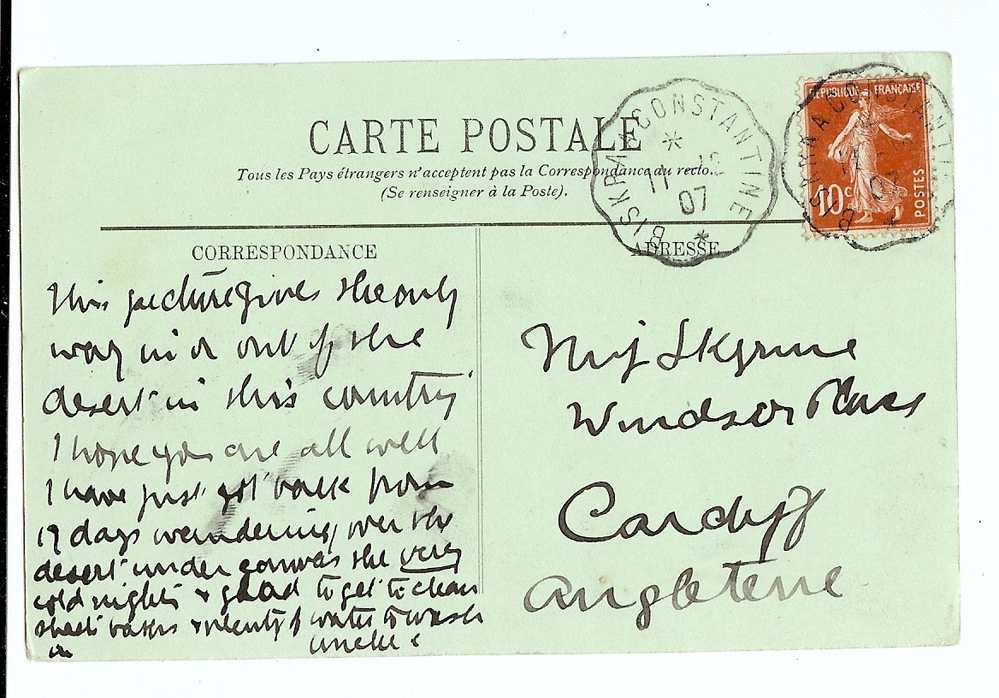 CARTE POSTALE
Tous les Pays étrangers n'acceptent pas la Correspondance au recto.
(Se renseigner à la Poste).
BISKRA A CONSTANTINE
11 12
07
REPUBLIQUE FRANÇAISE
10c
POSTES
BISKRA A CONSTANTINE
11
07
CORRESPONDANCE
This picture gives the only
way in or out of the
desert in this country
I hope you are all well
I have just got back from
19 days wandering over the
desert under canvas the very
cold nights & glad to get to clean
& plenty of water to wash
in
ADRESSE
Miss Skyrme
Windsor Place
Cardiff
Angleterre